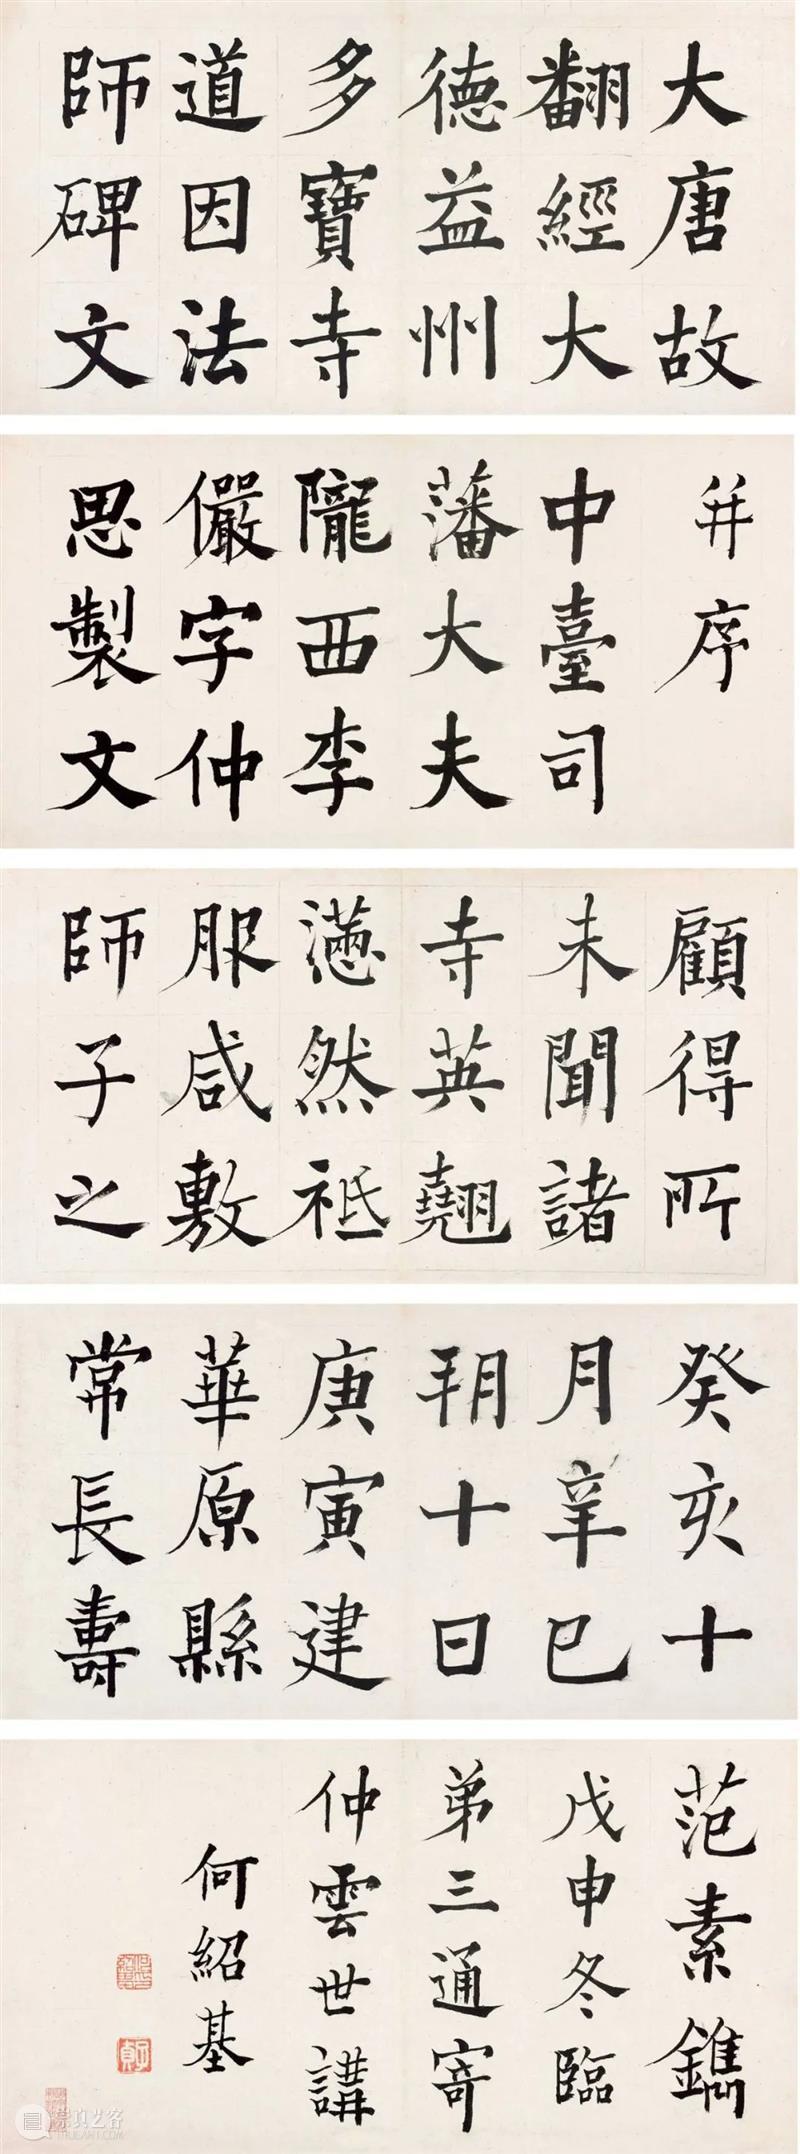 大唐故
翻經大
德益州
多寶寺
道因法
師碑文
并序
中臺司
藩大夫
隴西李
儼字仲
思製文
顧得所
未聞諸
寺英翹
懣然祗
服咸敷
師子之
癸亥十
月辛巳
朔十日
庚寅建
華原縣
常長壽
范素鐫
戊申冬臨
弟三通寄
仲雲世講
何紹基
子貞
崇真艺客